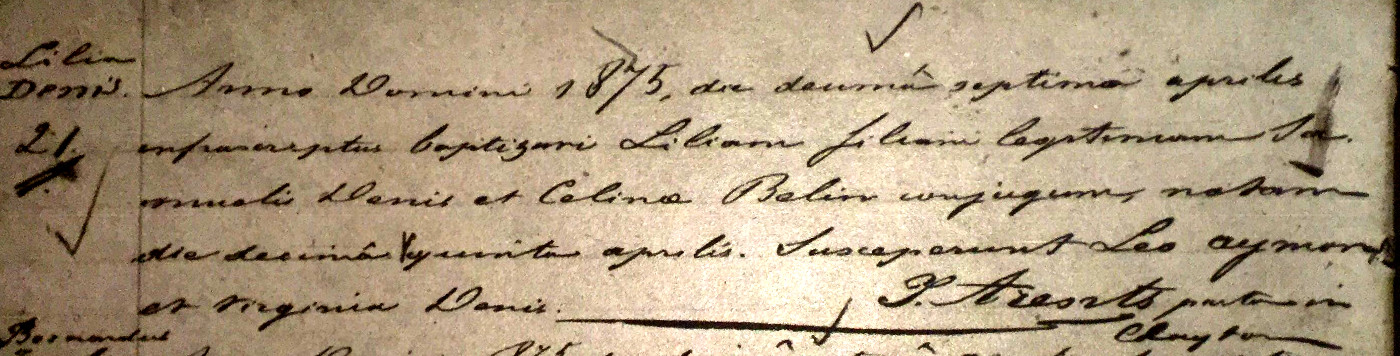 Lilia
Denis.
21.
Anno Domini 1875, die decimâ septima aprilis
infrascriptus baptizavi Liliam filiam legitimam Sa-
muelis Denis et Celinæ Belin conjugum, natam
die decimâ quinta aprilis. Susceperunt Leo Aymond
et Virginia Denis.
P. pastor in
Clayton
Bernardus